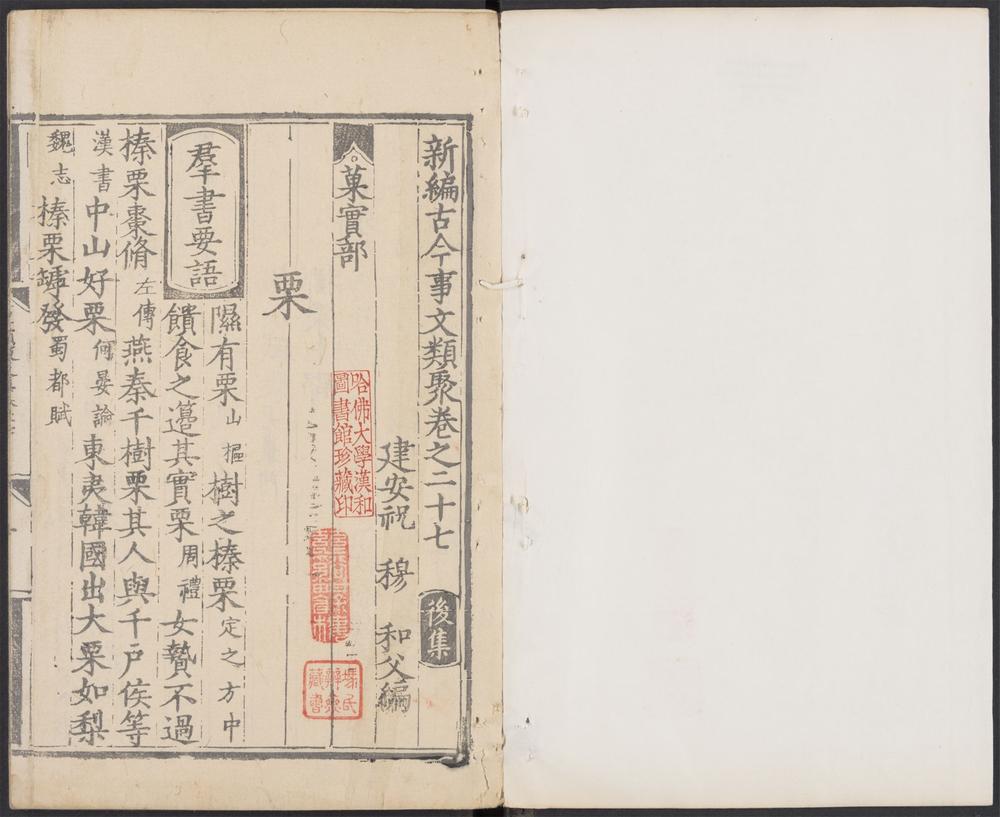 新編古今事文類聚卷之二十七 後集
建安祝 穆 和父編
菓實部
栗
羣書要語
隰有栗 山樞 樹之榛栗 定之方中
饋食之籩其實栗 周禮 女贄不過
榛栗棗脩 左傳 燕秦千樹栗其人與千戶侯等
漢書 中山好栗 何晏論 東夷韓國出大栗如梨
魏志 榛栗罅發 蜀都賦
哈佛大學漢和
圖書館珍藏印